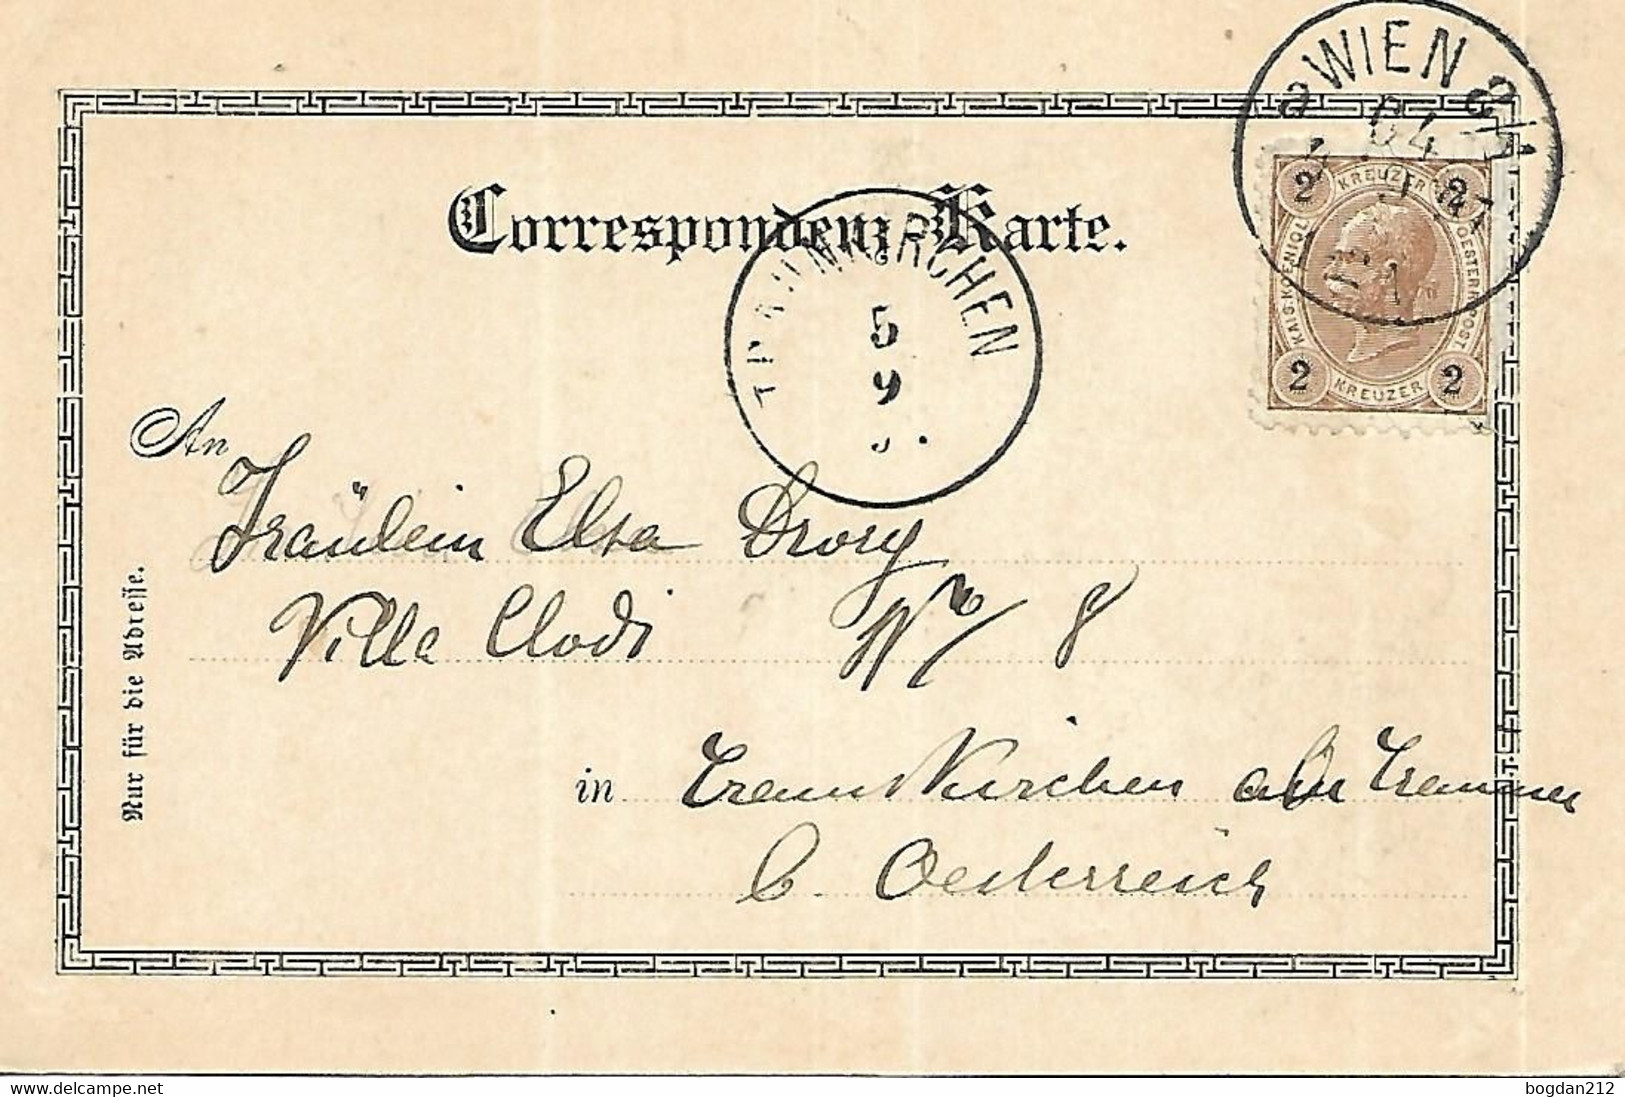 WIEN
64
2 KREUZER 2
KAIS. KOENIGL. OESTERR. POST
2 KREUZER 2
Correspondenz-Karte.
TRAUNKIRCHEN
5
9
An
Fräulein Elsa Drory
Villa Clodi No 8
in Traunkirchen a/Traunsee
O. Oesterreich
Nur für die Adresse.
www.delcampe.net
bogdan212